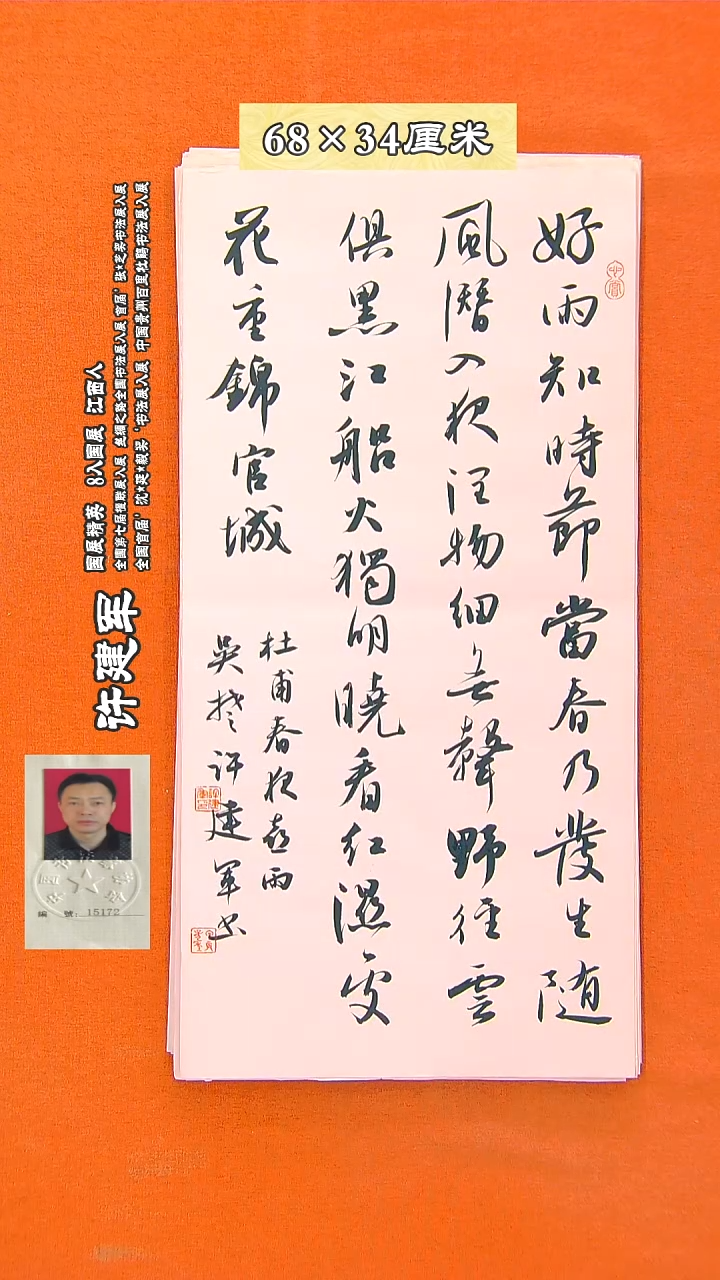 68×34厘米
好雨知時節當春乃發生随
風潛入夜潤物細無聲野徑雲
俱黑江船火獨明曉看紅濕處
花重錦官城
杜甫春夜喜雨
許建軍书
许建军
國展精英 8入國展 江西人
全國第七届楹联展入展 丝綢之路全國书法展入展 首届'张*芝奖书法展入展
全国首届'沈*延*毅奖'书法展入展 中国贵州百里杜鹃书法展入展
編 號：15172